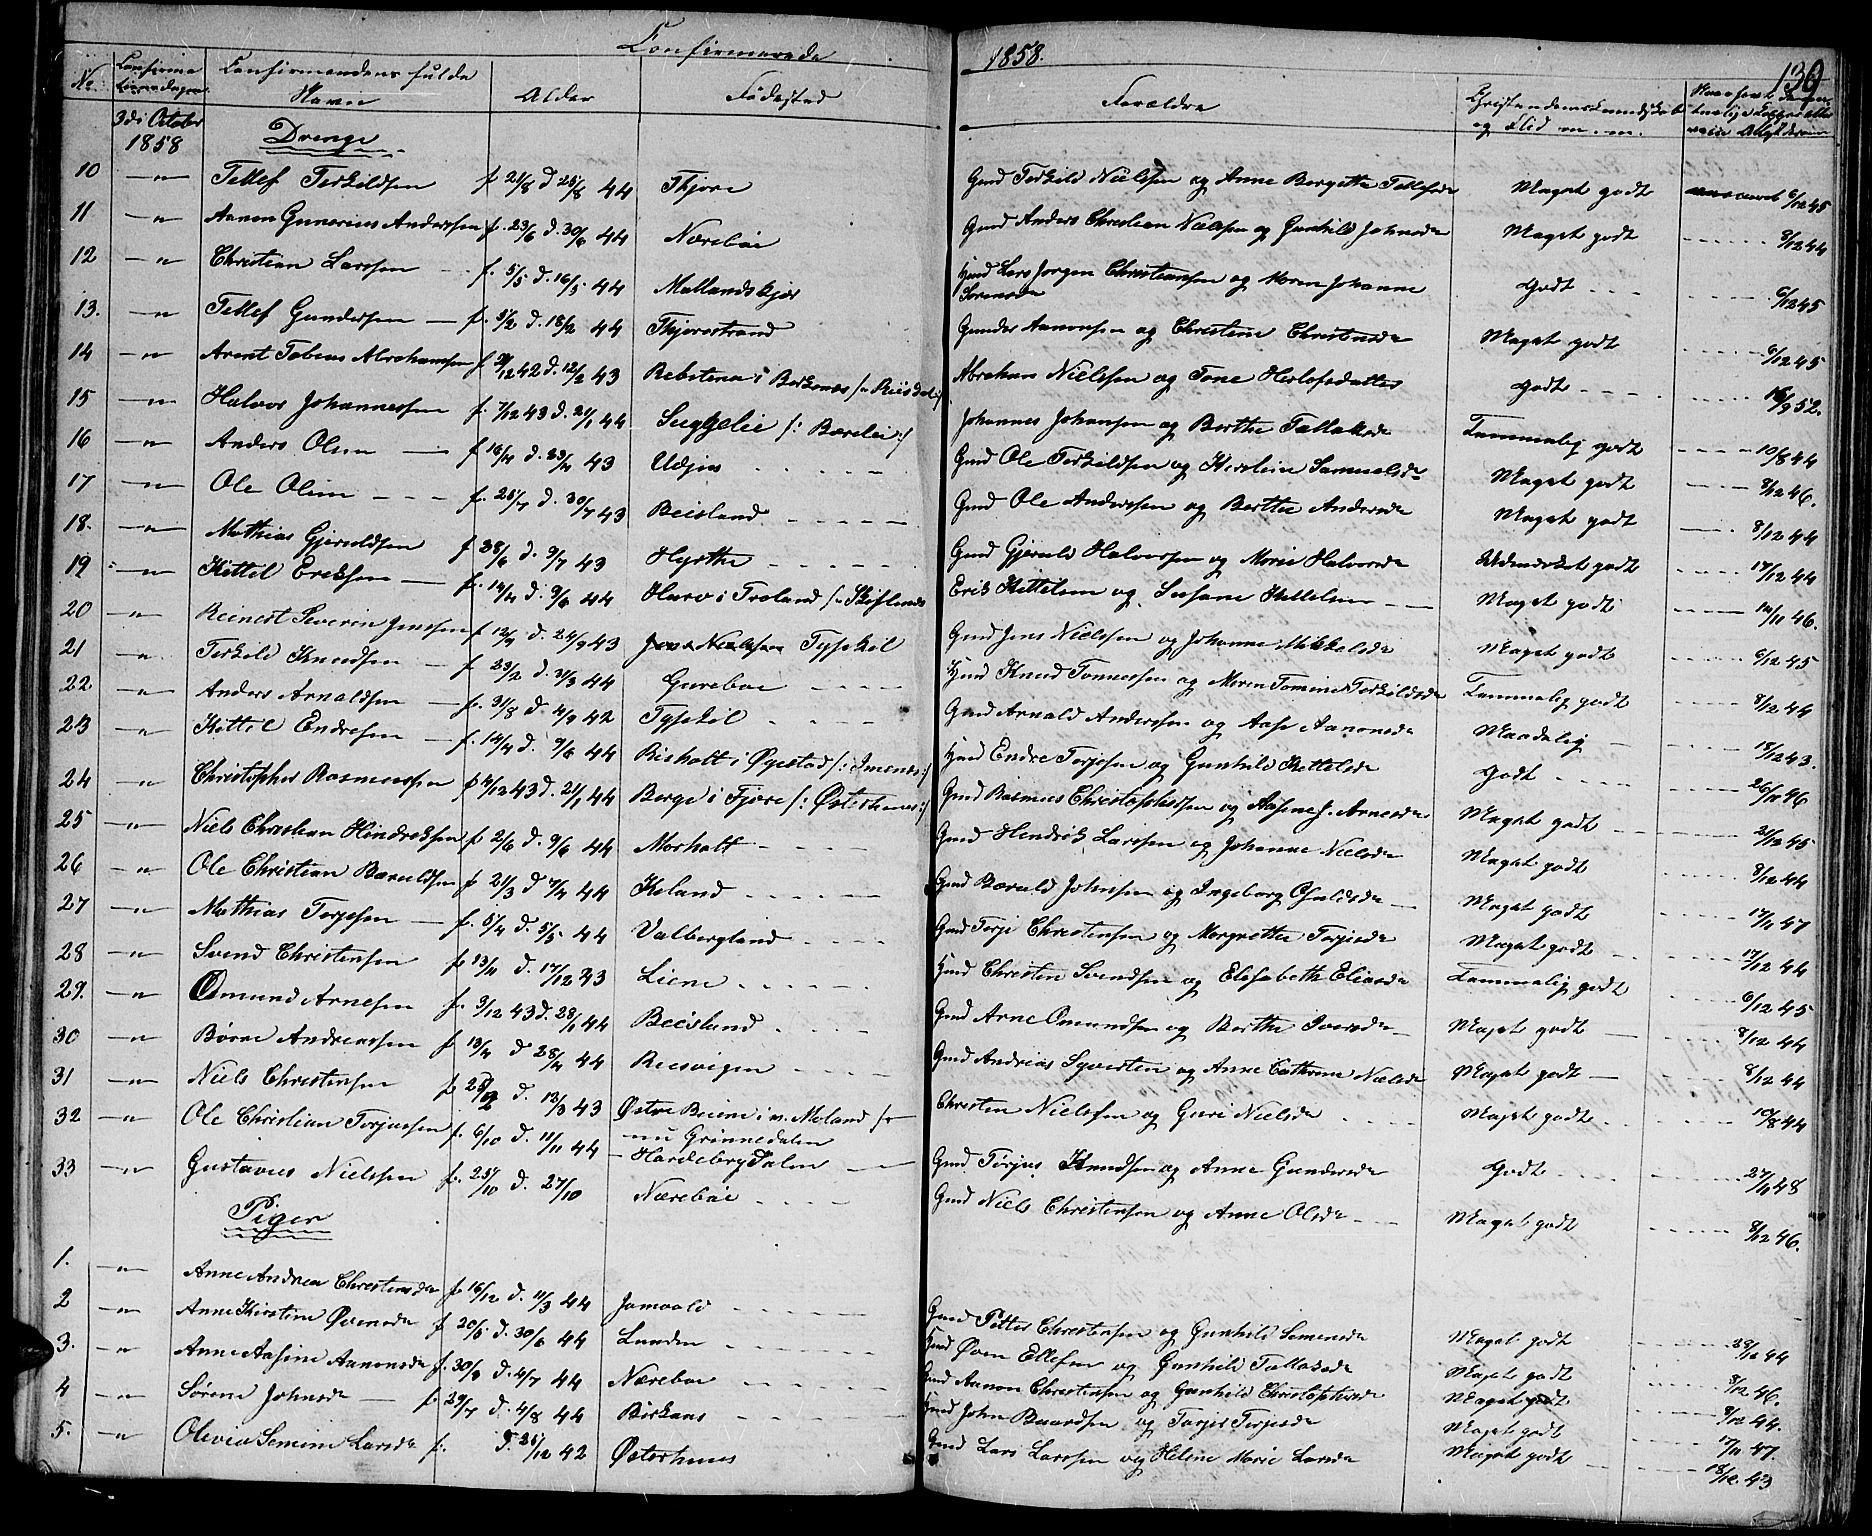 Confirmerede 1858. 139
No Confirmationsdagen Confirmandens fulde Navn Alder Fødested Forældre Christendomskundskab og Flid m. m.
3die October 1858 Drenge
10 —"— Tellef Terkildsen f 21/8 d 25/8 44 Fjære Gmd Terkild Nielsen og Anne Bergette Tellefsdr Meget godt 6/12 45
11 —"— Aanon Gunerius Anderssen f. 23/6 d. 30/6 44 Nærebøe Gmd Anders Christian Nielsen og Gunhild Johnsdr Meget godt 8/12 44
12 —"— Christian Larssen f. 5/5 d. 16/5 44 Mallandskjær Hmd Lars Jørgen Christiansen og Maren Johanne Sørensdr Godt 6/12 45
13. —"— Tellef Gundersen f. 5/2 d. 18/2 44 Fjærestrand Gunder Aanonsen og Christine Christensdr Meget godt 6/12 45
14 —"— Arent Tobias Abrahamsen f 31/12 42 d. 12/2 43 i Birkenæs Abraham Nielsen og Tone Herlofsdatter Godt 52.
15 —"— Halvor Johannessen f. 7/12 43 d. 21/1 44 Suggelie Johannes Johansen og Berthe Tallaksdr Temmelig godt 10/8 44
16 —"— Anders Olsen f 16/4 d. 23/4 43 Udjor Gmd Ole Terkildsen og Kirstine Samuelsdr Meget godt 8/12 46.
17 —"— Ole Olsen f. 25/7 d. 30/7 43 Beisland Gmd Ole Anderssen og Berthe Andersdr Meget godt 8/12 44
18. —"— Mathias Gjeruldsen f 28/6 d. 9/7 43 Hyrthe Gmd Gjeruld Halvorsen og Marie Halvorsdr Udmærket godt 17/12 44
19 —"— Kittel Eriksen f. 14/4 d. 9/6 44 i Froland Erik Kittelsen og Susane Kittelsen Meget godt 14/11 46.
20 —"— Reinert Severin Jenssen f 12/9 d. 24/9 43 Jens Nielsen Typekil Gmd Jens Nielsen og Johanne Mikkelsdr Meget godt 6/12 45
21 —"— Terkild Knudsen f 23/2 d. 31/3 44 Gurebøe Hmd Knud Tønnessen og Maren Tomine Terkildsdr Temmelig godt 8/12 46
22 —"— Anders Arnoldsen f. 31/8 d. 4/9 42 Typekil Gmd Arnold Anderssen og Aase Aanonsdr Maadelig 18/12 43.
23 —"— Kittel Endresen f. 14/4 d. 9/6 44 Bisholt i Øyestad Hmd Endre Torjesen og Gunhild Kittelsdr Godt 26/11 46
24 —"— Christopher Rasmussen f 4/12 43 d. 21/1 44 Berge i Fjære /: Østerhuus :/ Gmd Rasmus Christophersen og Aasine J. Arnesdr Meget godt 21/12 45
25 —"— Niels Christian Hendriksen f 2/6 d. 9/6 44 Morholt Gmd Hendrik Larssen og Johanne Nielsdr Meget godt 8/12 44
26 —"— Ole Christian Baruldsen f 21/3 d 7/4 44 Keland Gmd Baruld Johnsen og Ingeborg Osuldsdr Meget godt 17/11 47
27 —"— Mathias Torjesen f. 5/4 d. 5/5 44 Valbergland Gmd Torje Christensen og Margrethe Torjesdr Meget godt 17/12 44
28 —"— Svend Christensen f. 13/11 d. 17/12 43 Liene Hmd Christen Svendsen og Elisabeth Eliasdr Temmelig godt 6/12 45
29. —"— Omund Arnesen f. 9/12 43 d. 28/1 44 Beisland Gmd Arne Omundsen og Berthe Iversdr Meget godt 8/12 44
30 —"— Børre Andreassen f 13/4 d 28/4 44 Reesvigen Gmd Andreas Syversten og Anne Cathrine Nielsdr Meget godt 8/12 44
31 —"— Niels Christensen f d. 12/3 43 Østre i v. Moland /- nu Grinnedalen Christen Nielsen og Guri Nielsdr Meget godt 10/8 44
32 —"— Ole Christian Torjussen f. 6/10 d. 11/11 44 HardebergDalen Gmd Torjus Knudsen og Anne Gundersdr Godt 27/11 48
33 —"— Gustavus Nielssen f. 25/10 d. 27/10 Nærebøe Gmd Niels Christensen og Anne Olsdr Meget godt 8/12 46.
Piger
1. —"— Anne Andrea Christensdr f 16/12 d. 11/3 44 Jomaald Gmd Petter Christensen og Gunhild Simensdr Meget godt 28/12 44
2 —"— Anne Kirstine Øvensdr f 20/5 d. 30/6 44 Lunden Hmd Øven Ellefsen og Gunhild Tallaksdr Meget godt 8/12 46.
3. —"— Anne Aasine Aanonsdr f. 30/3 d. 4/7 44 Nærebøe Gmd Aanon Christensen og Gunhild Christophersdr Meget godt 8/12 44.
4 —"— Sørene Johnsdr f. 29/7 d 4/8 44 Birkenes Gmd John Baardsen og Torjer Torjesdr Meget godt 17/11 47.
5. —"— Olevia Semine Larsdr f. d. 26/12 42 Østerhuus Gmd Lars Larssen og Helene Marie Larsdr Meget godt 18/12. 43